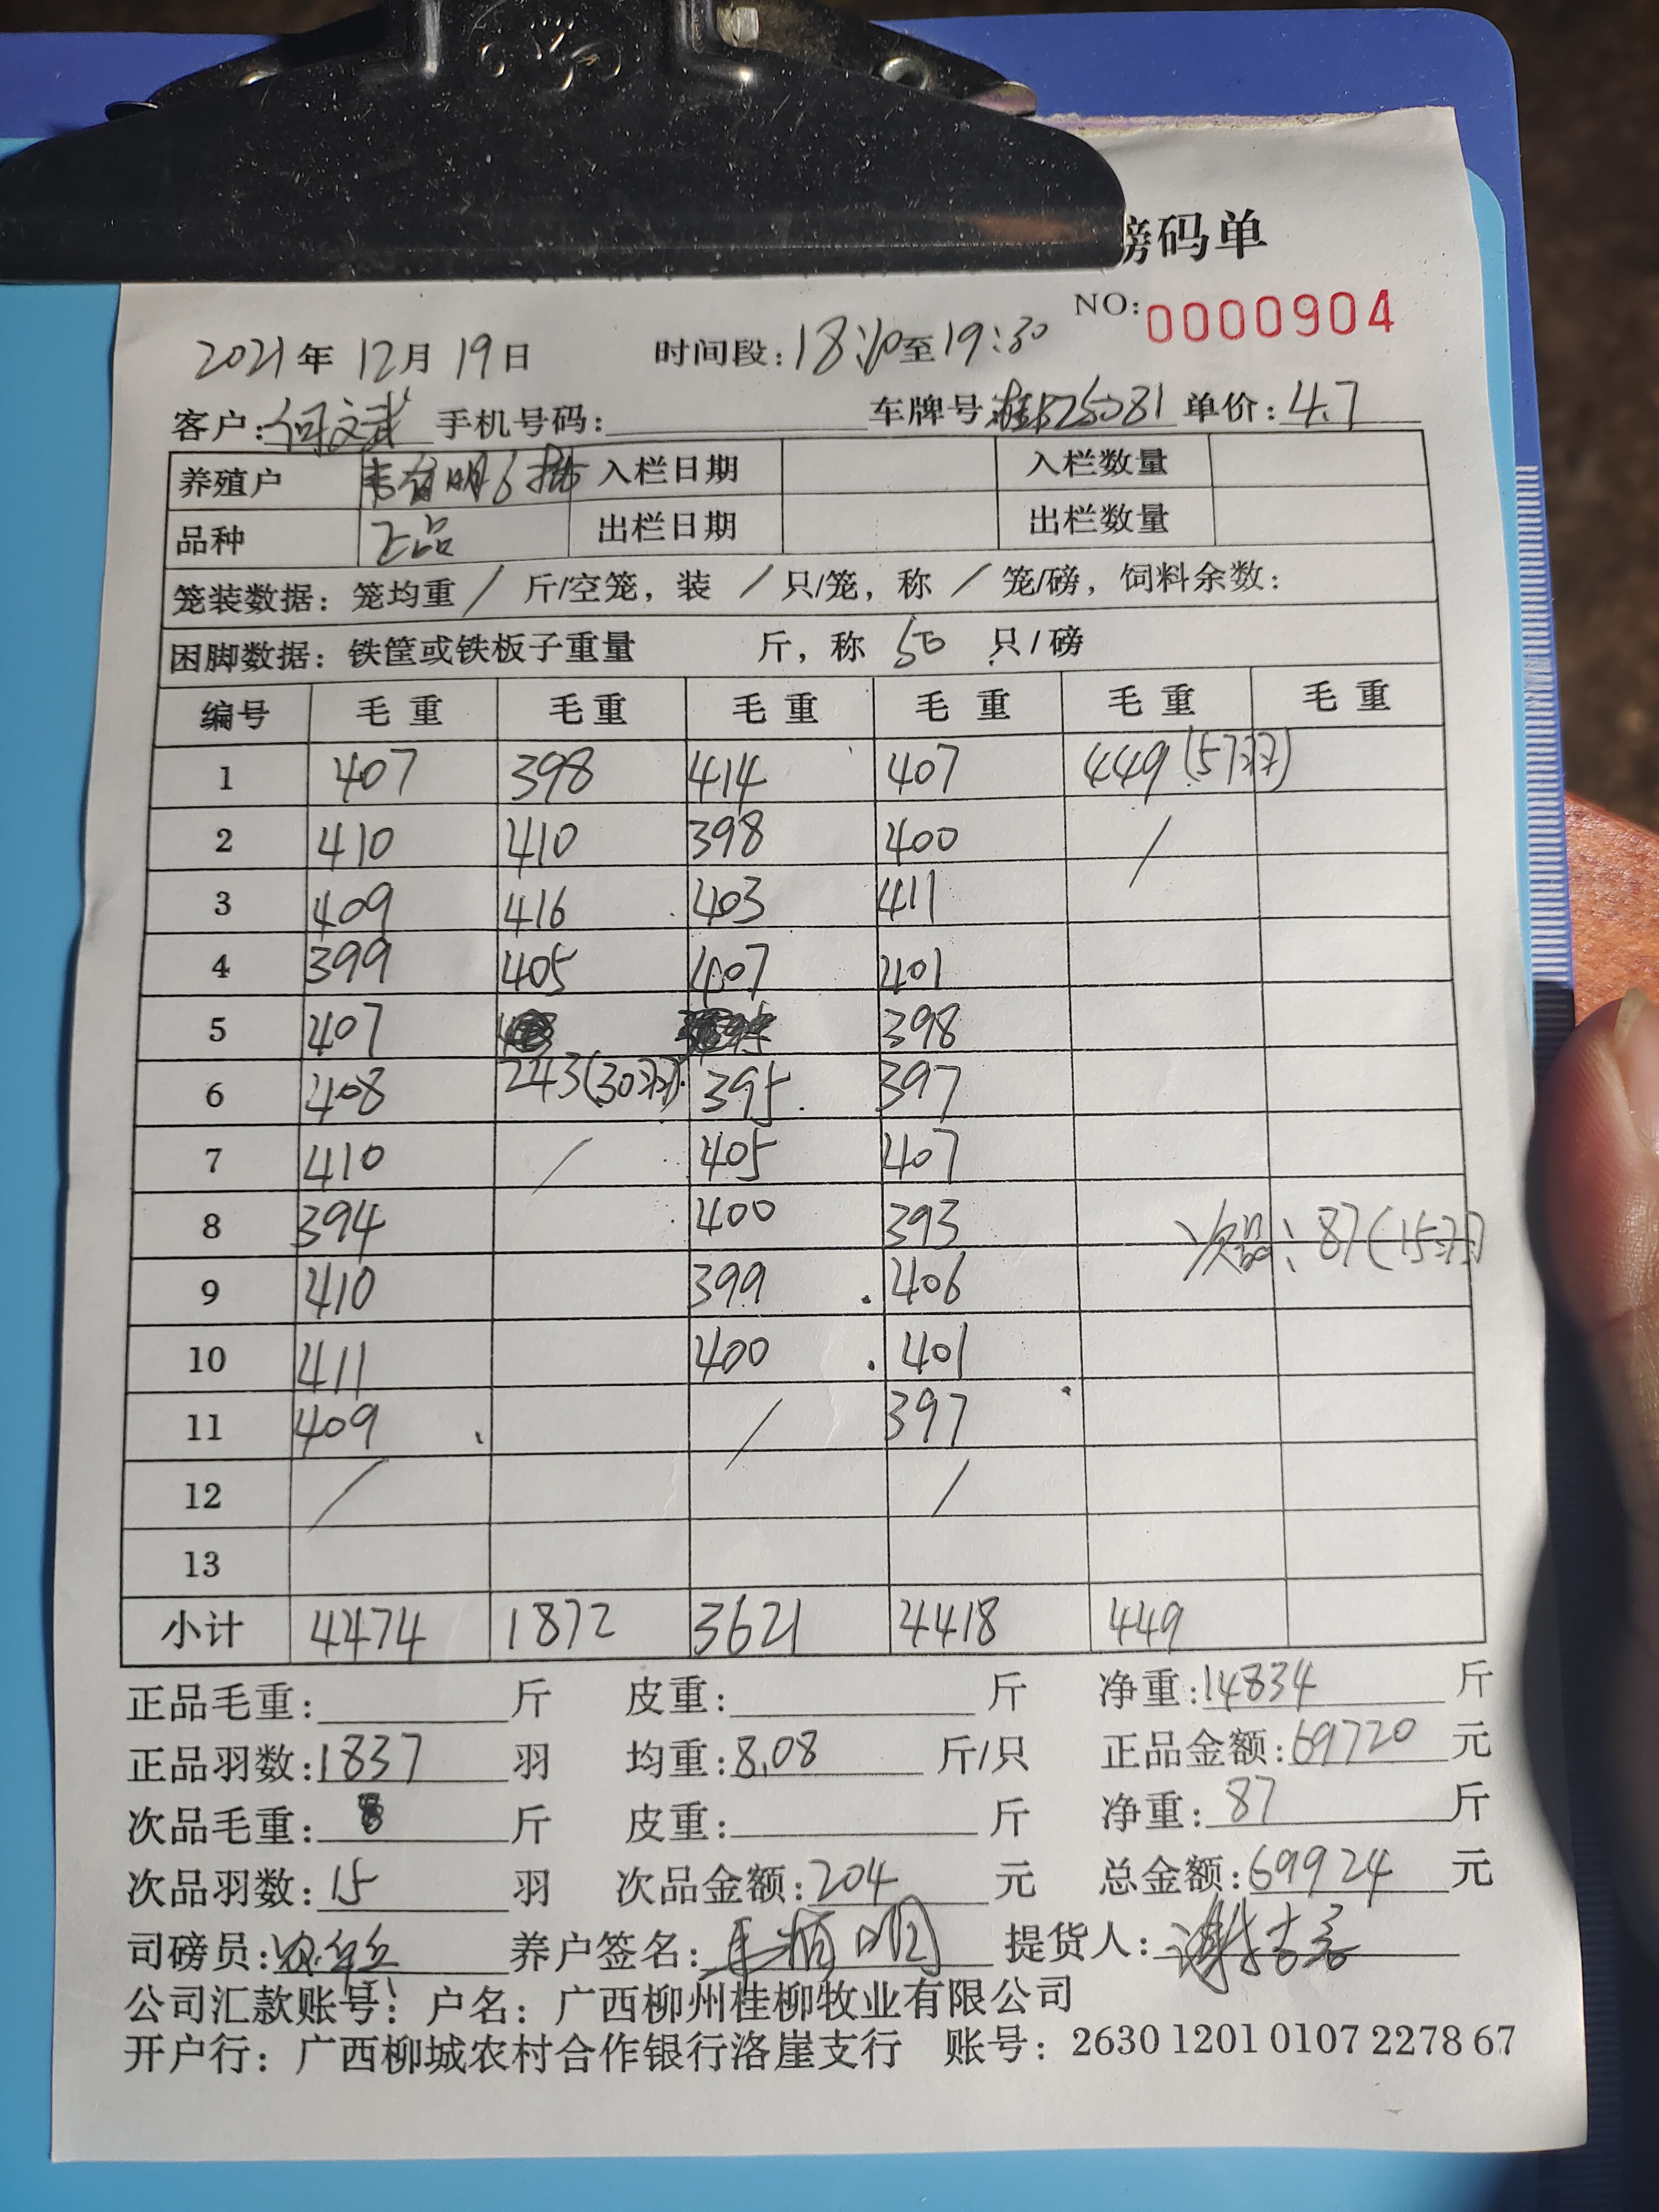 磅码单
NO: 0000904
2021年 12月 19日 时间段: 18:10至19:30
客户: 何文武 手机号码: 车牌号 桂B25081 单价: 4.7
养殖户 明6批 入栏日期 入栏数量
品种 正品 出栏日期 出栏数量
笼装数据: 笼均重 / 斤/空笼, 装 / 只/笼, 称 / 笼/磅, 饲料余数:
困脚数据: 铁筐或铁板子重量 斤, 称 50 只/磅
编号 毛重 毛重 毛重 毛重 毛重 毛重
1 407 398 414 407 449(57羽)
2 410 410 398 400 /
3 409 416 403 411
4 399 405 407 401
5 407 398
6 408 243(30羽) 395 397
7 410 / 405 407
8 394 400 393 次品: 87(15羽)
9 410 399 406
10 411 400 401
11 409 / 397
12 / /
13
小计 4474 1872 3621 4418 449
正品毛重: 斤 皮重: 斤 净重: 14834 斤
正品羽数: 1837 羽 均重: 8.08 斤/只 正品金额: 69720 元
次品毛重: 斤 皮重: 斤 净重: 87 斤
次品羽数: 15 羽 次品金额: 204 元 总金额: 69924 元
司磅员: 养户签名: 提货人:
公司汇款账号: 户名: 广西柳州桂柳牧业有限公司
开户行: 广西柳城农村合作银行洛崖支行 账号: 2630 1201 0107 2278 67